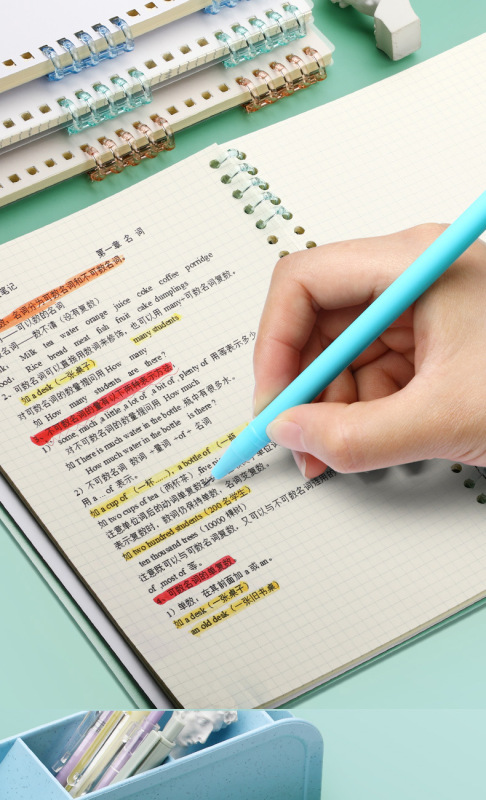 第一章 名 词
笔记
名词分为可数名词和不可数名词。
可以数的名词
名词——数不清（没有复数）
Milk tea water orange juice coke coffee porridge
Rice bread meat fish fruit cake dumplings
2、可数名词可以直接用数词来修饰，也可以用 many+可数名词复数。
如 a desk（一张桌子） many students
对可数名词的数量提问用 How many
如 How many students are there?
3、不可数名词的数量有以下两种表示方法：
1）some, much ,a little, a lot of ,a bit of , plenty of 用等表示多少
对不可数名词的数量提问用 How much
如 There is much water in the bottle .瓶中有很多水。
How much water in the bottle is there ?
2）不可数名词 数词 +量词 +of + 名词
用 a…of 表示。
如 a cup of （一杯……）, a bottle of （一瓶
如 two cups of tea（两杯茶）, five
注意单位词后的动词单复数
表示复数时，数词仍保持单数，名词变复数。
如 two hundred students（200 名学生）
ten thousand trees（10000 棵树）
注意既可以与可数名词复数，又可以与不可数名词连用的
of ,most of 等。
4、可数名词的单复数
1）单数，在其前面加 a 或 an。
如 a desk（一张桌子）
an old desk（一张旧书桌）